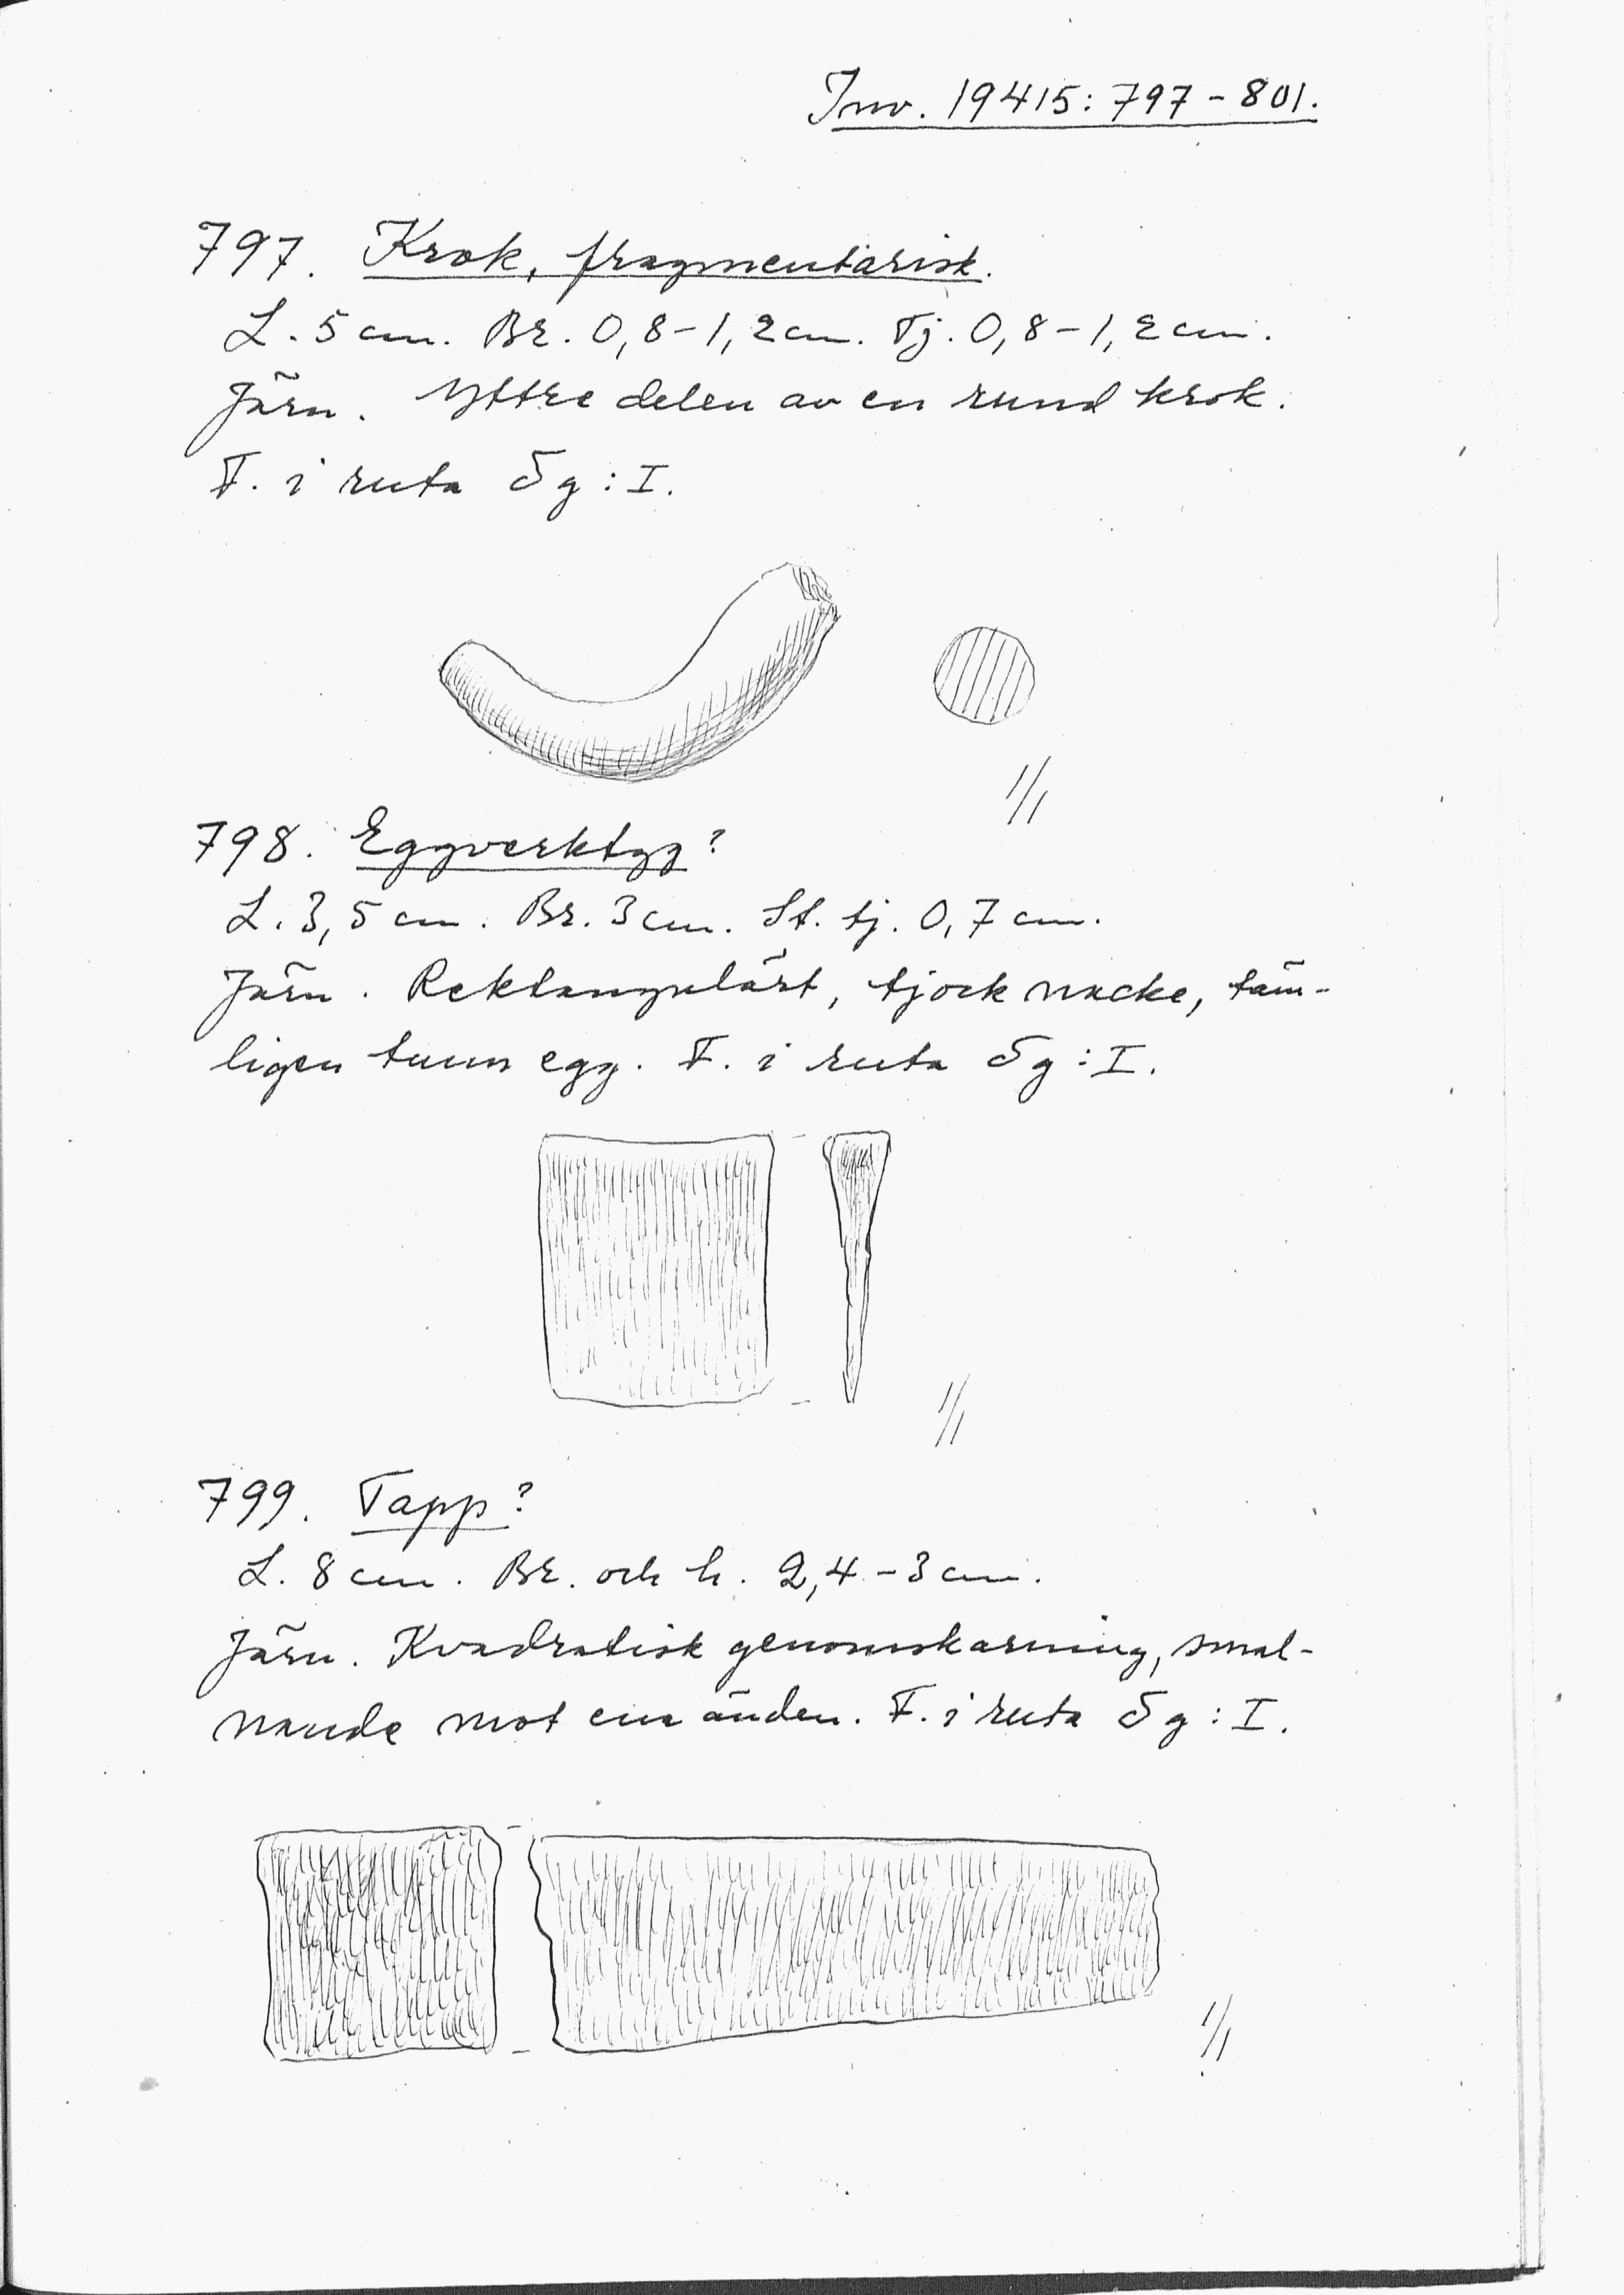 Inv. 19415:797-801.
797. Krok, fragmentarisk.
L. 5 cm. Br. 0,8-1,2 cm. Tj. 0,8-1,2 cm.
Järn. Yttre delen av en rund krok.
F. i ruta 5g:I.
1/1
798. Eggverktyg?
L. 3,5 cm. Br. 3 cm. St. tj. 0,7 cm.
Järn. Rektangulärt, tjock nacke, täm-
ligen tunn egg. F. i ruta 5g:I.
1/1
799. Tapp?
L. 8 cm. Br. och h. 2,4-3 cm.
Järn. Kvadratisk genomskärning, smal-
nande mot ena änden. F. i ruta 5g:I.
1/1